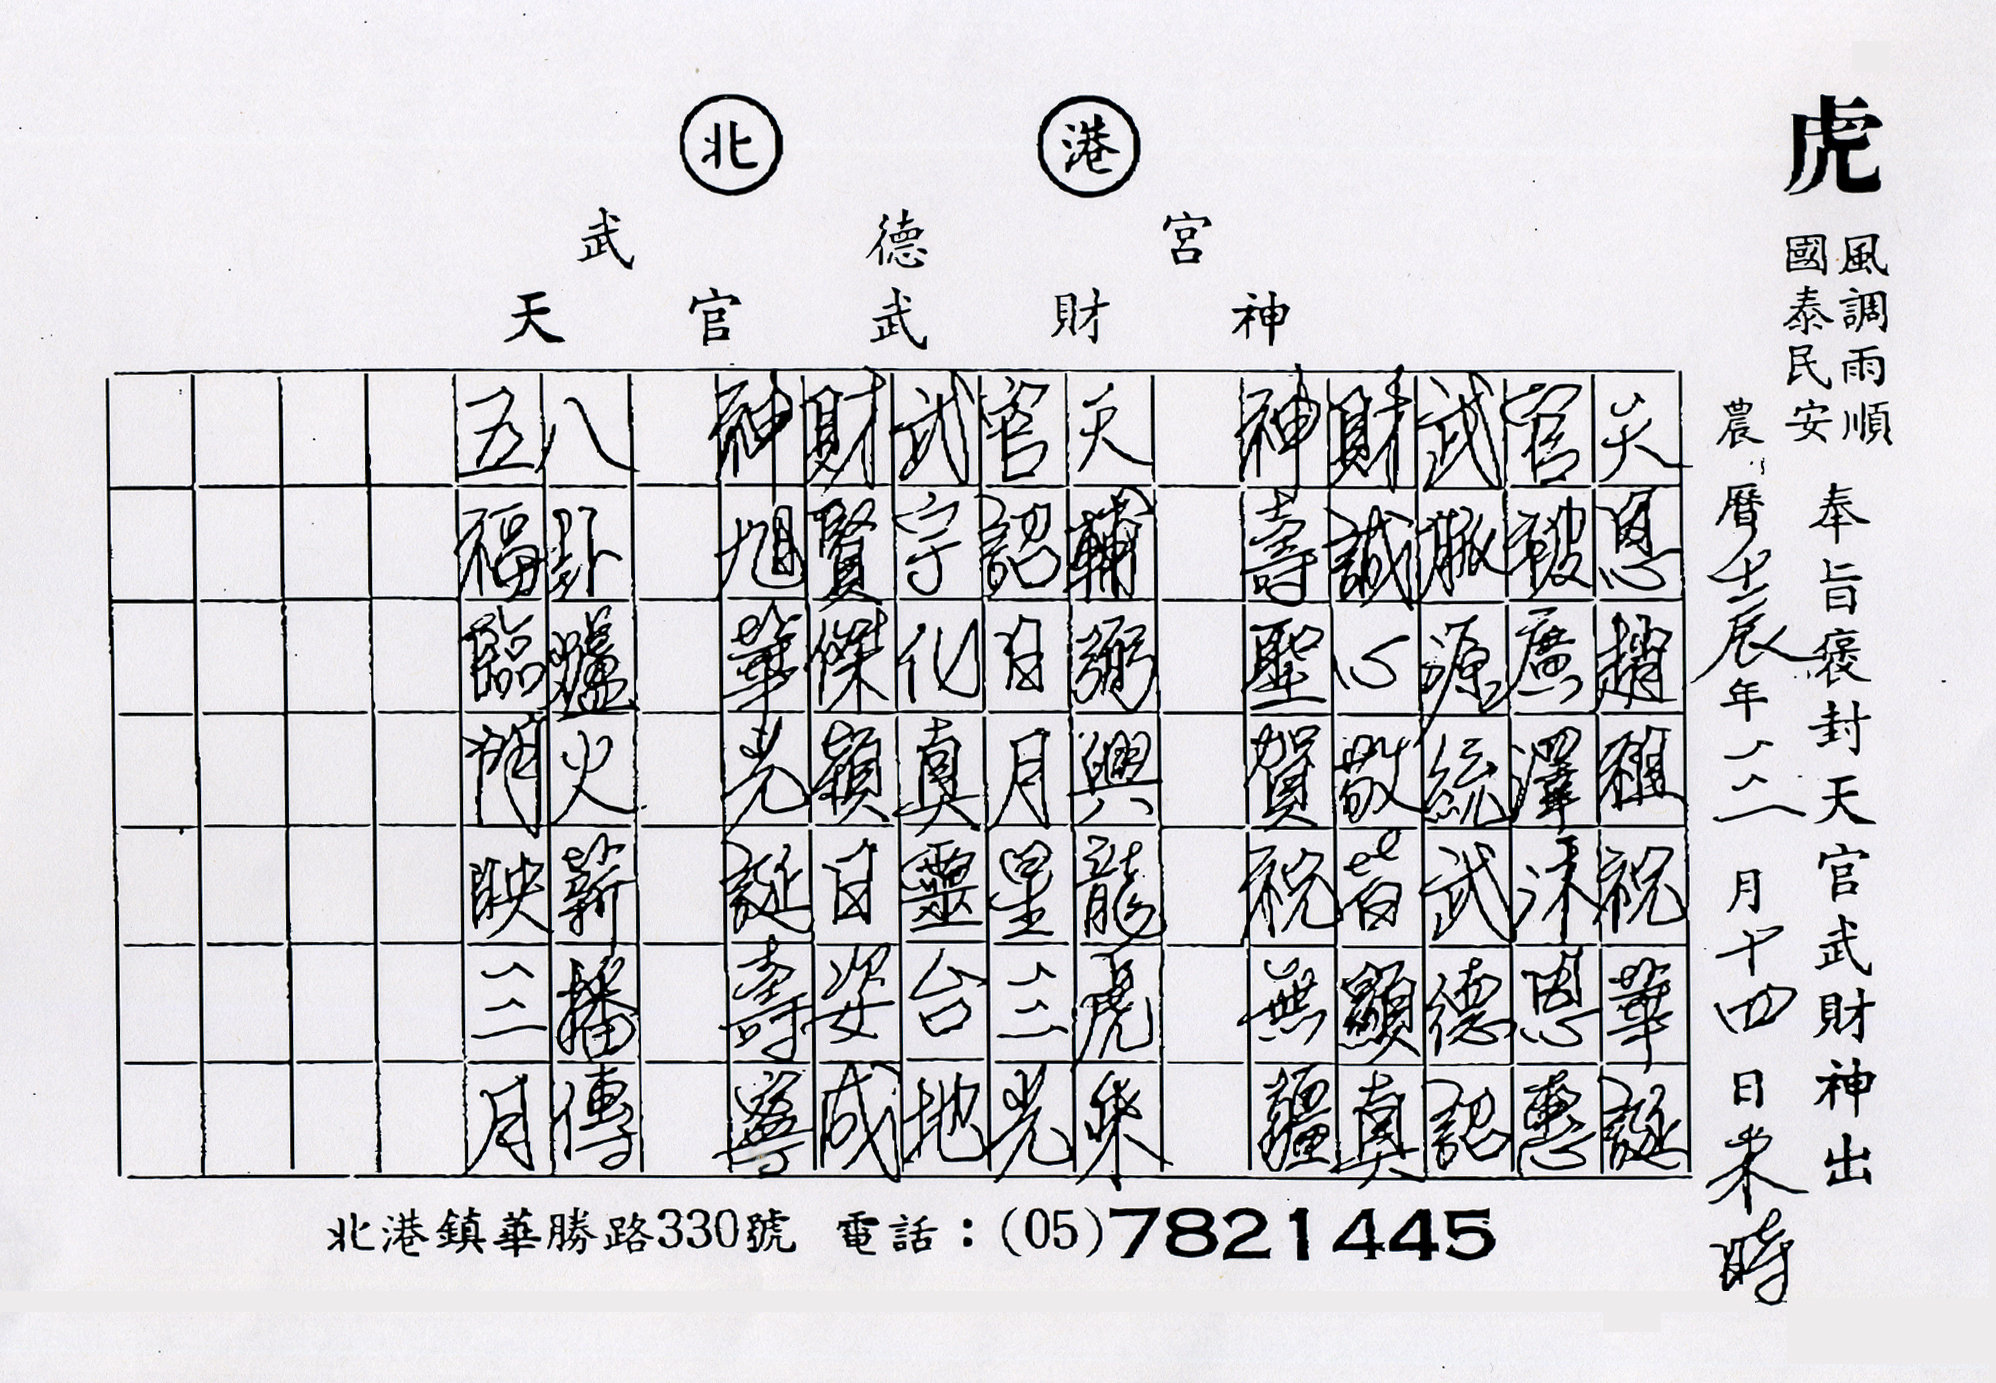 北 港
武德宮
天官武財神
虎
風調雨順
國泰民安
奉旨褒封天官武財神出
農曆壬辰年三月十四日未時
天恩趙祖祝華誕
官被廣澤沐恩惠
武脈源統武德記
財誠心敬昔顯真
神壽聖賀祝無疆
天輔弼興龍虎來
官詔日月星三光
武宇化真靈台地
財賢傑穎日姿成
神旭華光誕壽寧
八卦爐火薪播傳
五福臨門映三月
北港鎮華勝路330號 電話：(05)7821445